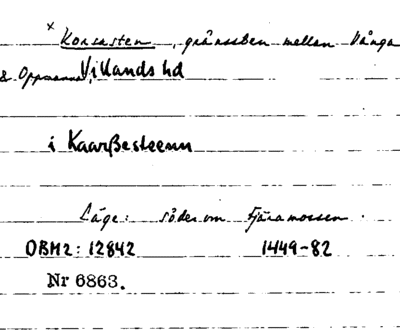 x Korsasten, gränssten mellan Vånga
& Oppmanna, Villands hd
i Kaarßesteenn
Läge: söder om Fjäramossen.
OBH2: 12842 1449-82
Nr 6863.